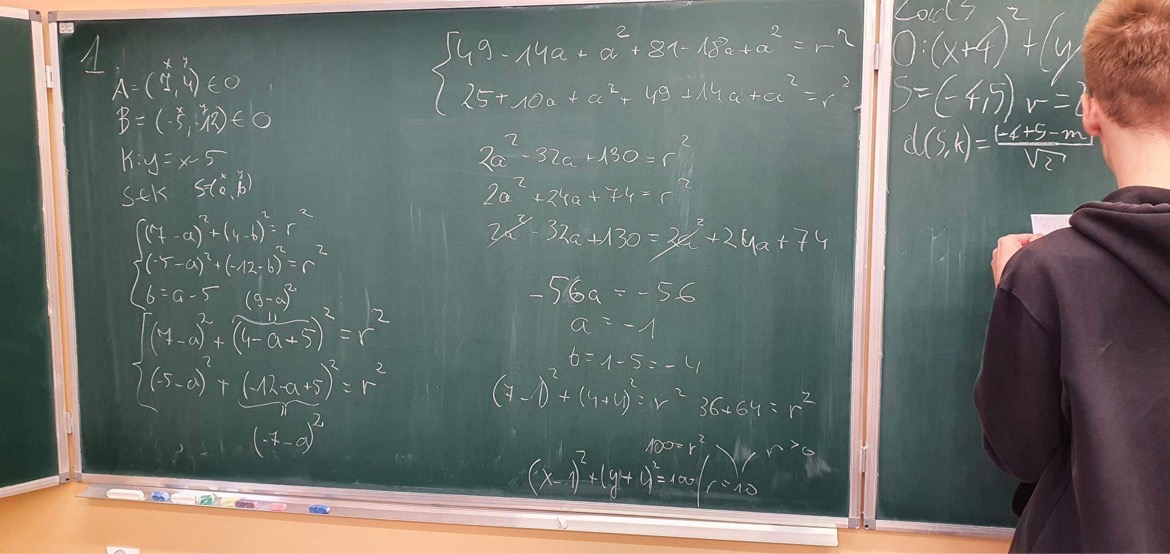 1.
A = (7, 4) ∈ O
x y
B = (-5, -12) ∈ O
x y
K: y = x - 5
S ∈ K S = (a, b)
x y
(7 - a)² + (4 - b)² = r²
(-5 - a)² + (-12 - b)² = r²
b = a - 5 (9 - a)²
(7 - a)² + (4 - a + 5)² = r²
(-5 - a)² + (-12 - a + 5)² = r²
(-7 - a)²
49 - 14a + a² + 81 - 18a + a² = r²
25 + 10a + a² + 49 + 14a + a² = r²
2a² - 32a + 130 = r²
2a² + 24a + 74 = r²
2a² - 32a + 130 = 2a² + 24a + 74
-56a = -56
a = -1
b = 1 - 5 = -4
(7 - 1)² + (4 + 4)² = r² 36 + 64 = r²
100 = r² r > 0
(x - 1)² + (y + 4)² = 100 r = 10
O: (x + 4)² + (y
S = (-4, 5) r =
d(S, k) = |-4 + 5 - m
√2